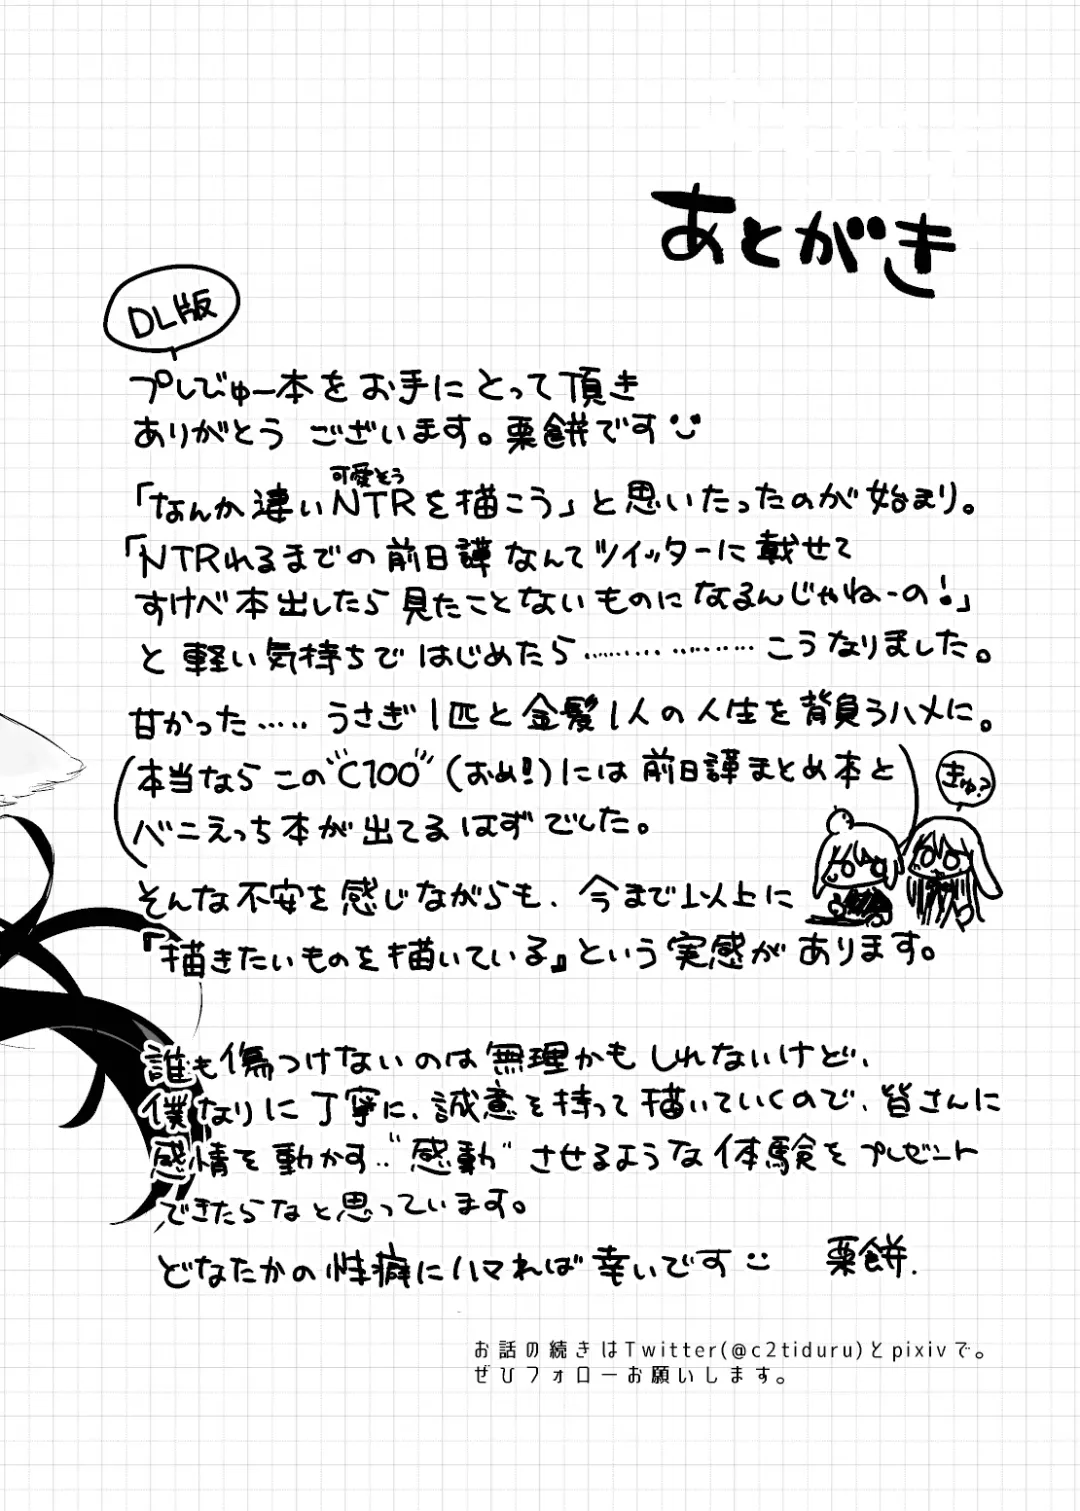 あとがき
DL版
プレびゅー本をお手にとって頂き
ありがとうございます。栗餅です
可愛そう
「なんか違いNTRを描こう」と思いたったのが始まり。
「NTRれるまでの前日譚なんてツイッターに載せて
すけべ本出したら見たことないものになるんじゃねーの!」
と軽い気持ちではじめたら………………こうなりました。
甘かった……うさぎ1匹と金髪1人の人生を背負うハメに。
(本当ならこの"C100"(おめ!!)には前日譚まとめ本と
バニえっち本が出てるはずでした。)
きゅ?
そんな不安を感じながらも、今まで以上に
『描きたいものを描いている』という実感があります。
誰も傷つけないのは無理かもしれないけど、
僕なりに丁寧に、誠意を持って描いていくので、皆さんに
感情を動かす.."感動"させるような体験をプレゼント
できたらなと思っています。
どなたかの性癖にハマれば幸いです
栗餅.
お話の続きはTwitter(@c2tiduru)とpixivで。
ぜひフォローお願いします。